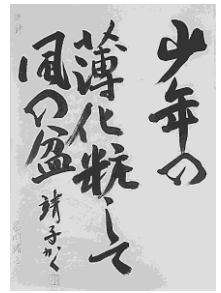 少年の
薄化粧して
風の盆
靖子かく